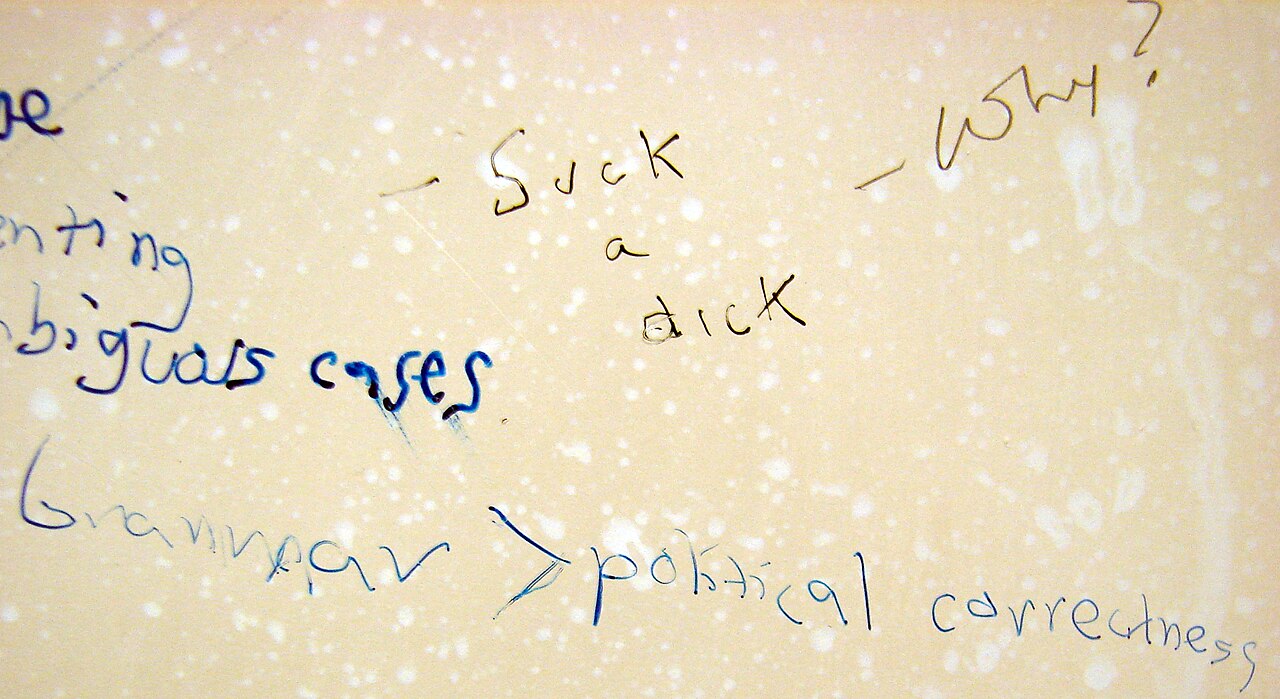 - Why?
- Suck
a
dick
enting
biguous cases
Grammar > political correctness